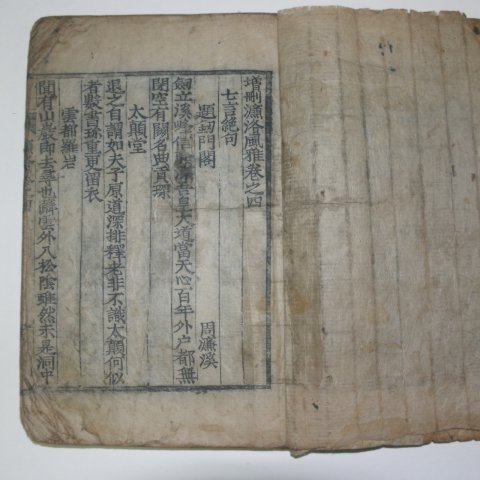 增刪濂洛風雅卷之四
七言絶句
題劒門閣 周濂溪
劒立溪峰信險深吾皇大道當天心百年外户都無
閉空有關名點貢琛
太顚堂
退之自謂如夫子原道深排釋老非不識太顚何似
者數書珍重更留衣
雲都羅岩
聞有山巖即去尋也躋雲外入松陰雖然未是洞中